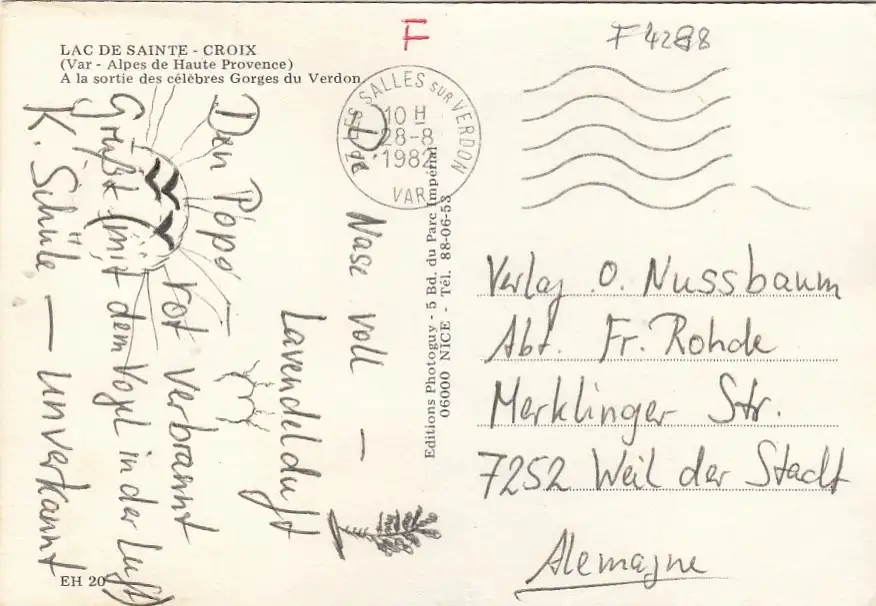 LAC DE SAINTE - CROIX
(Var - Alpes de Haute Provence)
A la sortie des célèbres Gorges du Verdon
F
F 4288
LES SALLES SUR VERDON
10 H
28-8
1982
VAR
Die Nase voll –
Lavendelduft
Den Popo –
rot verbrannt
Grüßt (mit dem Vogel in der Luft)
K. Schüle – unverkannt
Editions Photoguy - 5 Bd. du Parc Impérial
06000 NICE - Tél. 88-06-53
Verlag O. Nussbaum
Abt. Fr. Rohde
Merklinger Str.
7252 Weil der Stadt
Alemagne
EH 20